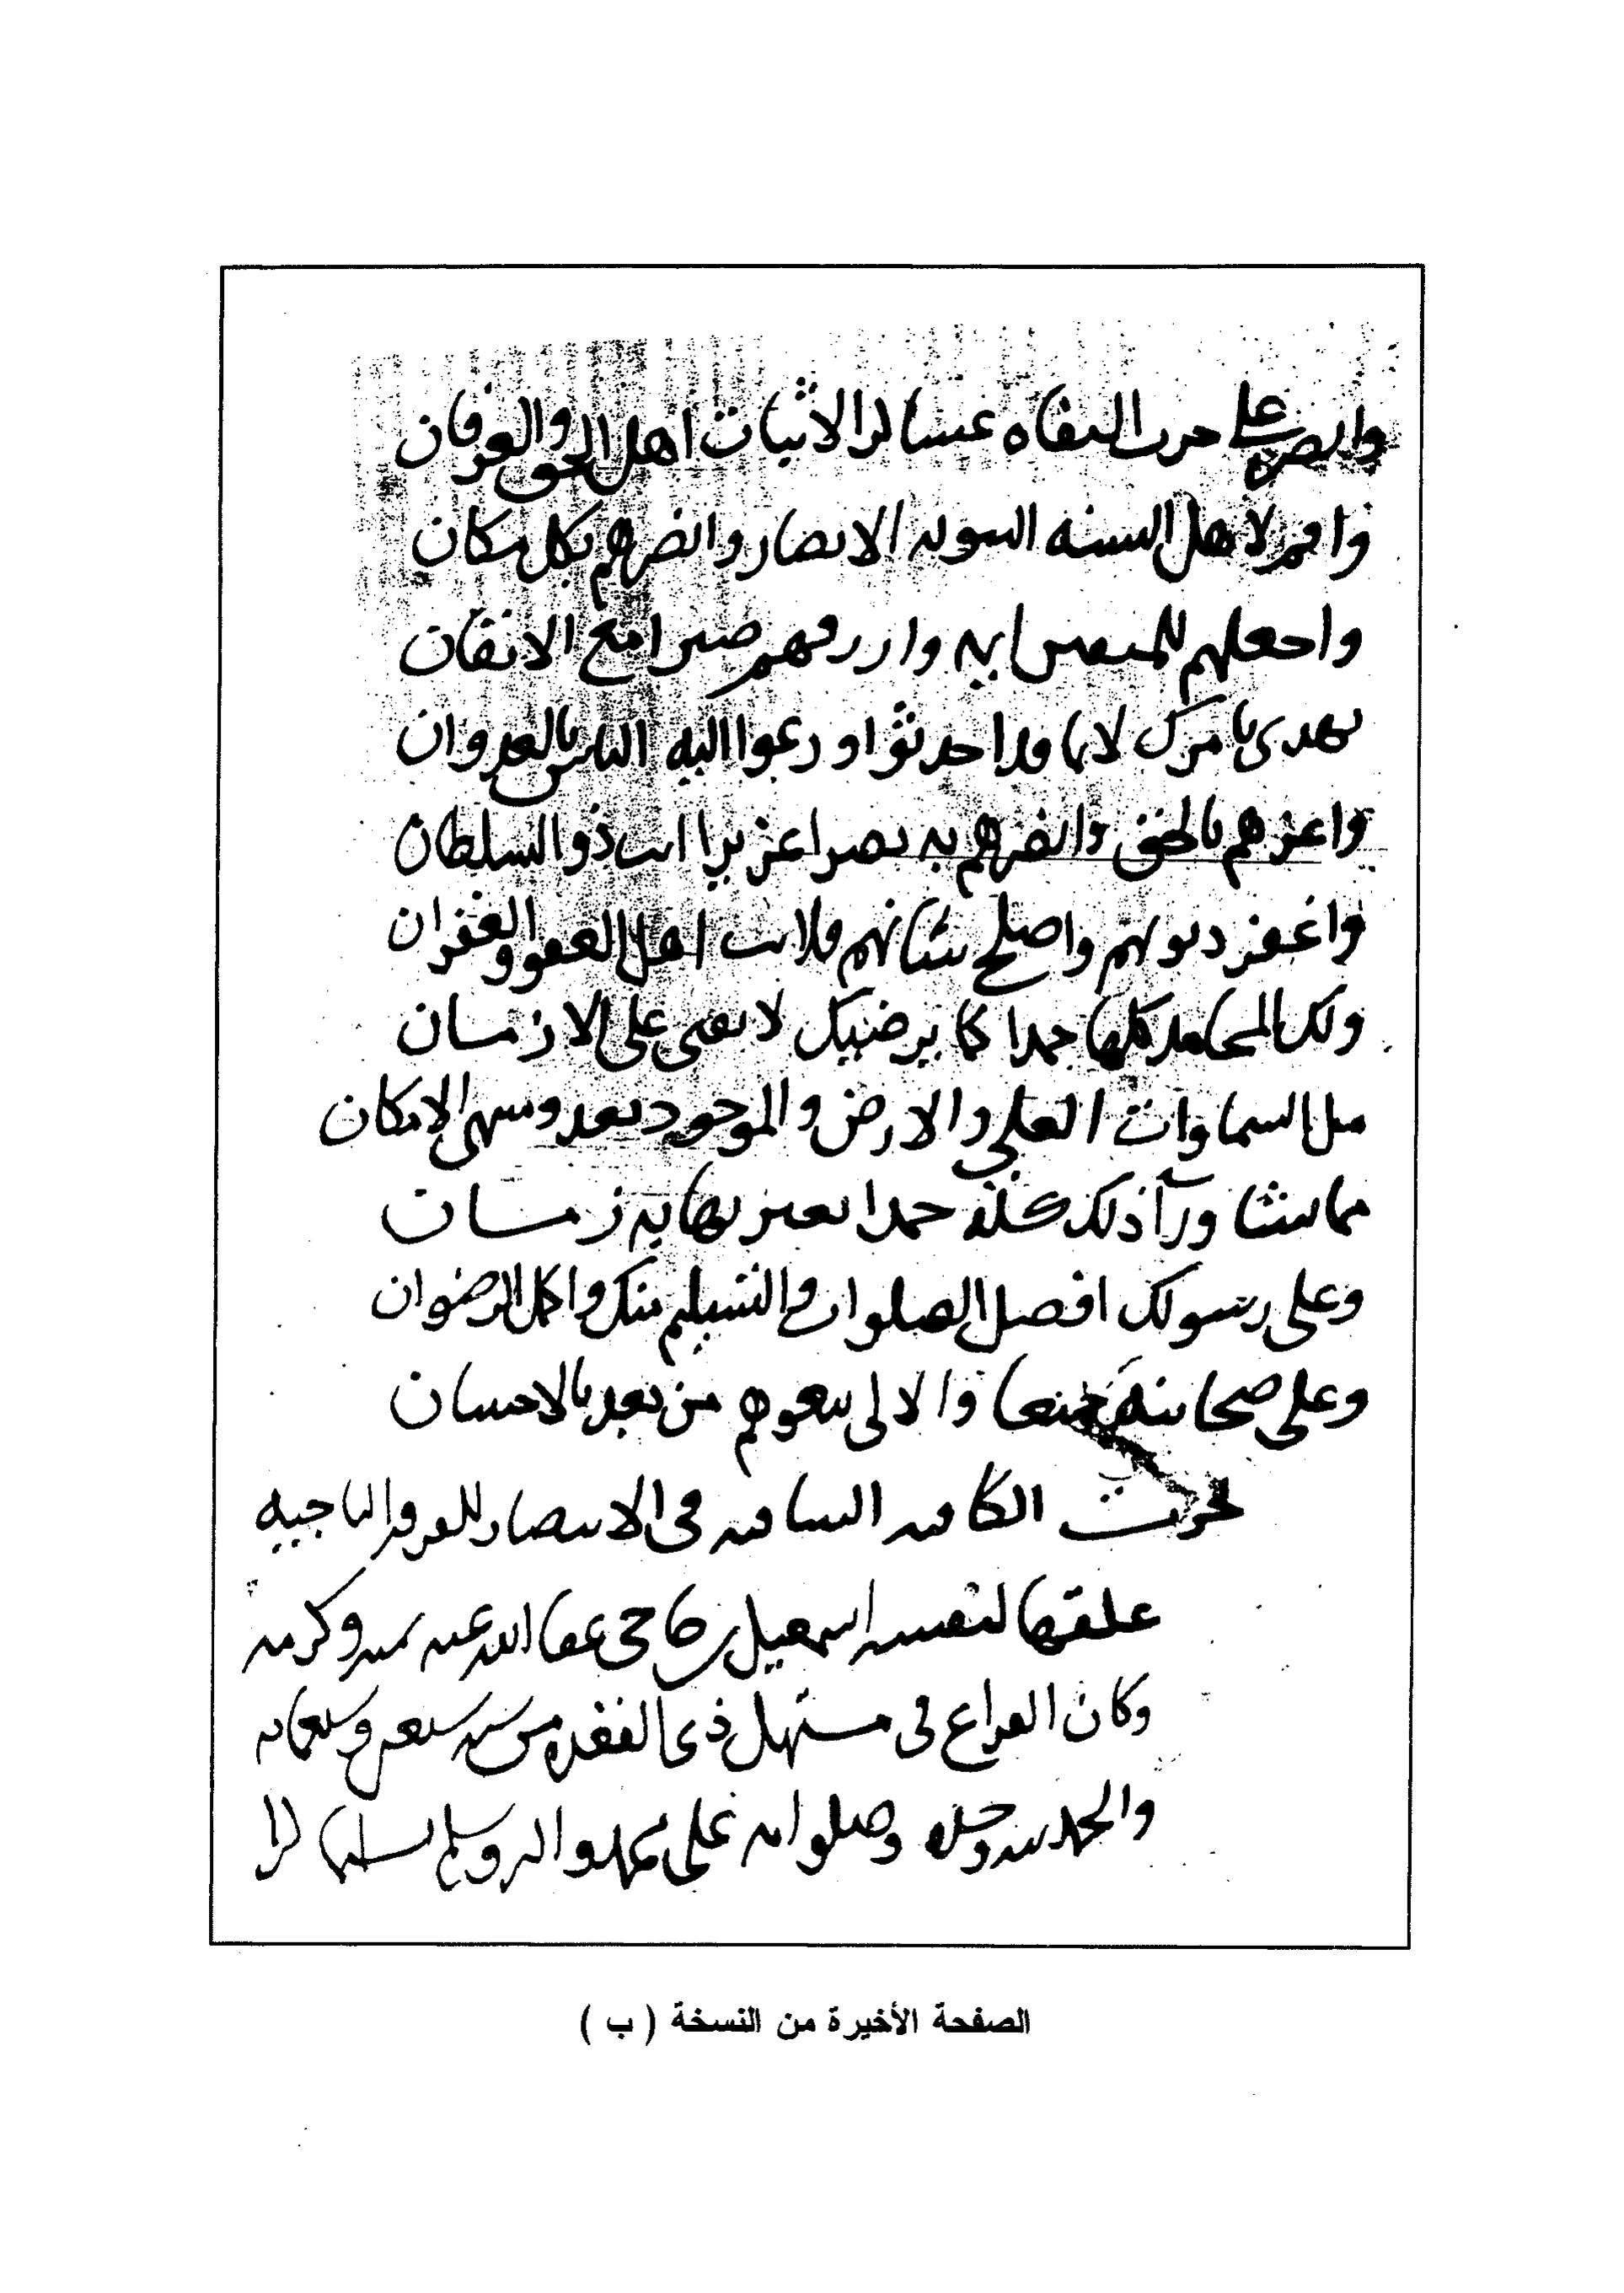 وانصر على حزب النفاة عساكر الاثبات اهل الحق والعرفان
واقم لاهل السنه النبويه الانصار وانصرهم بكل مكان
واجعلهم للمتقين ايمه وارزقهم صبرا مع الايقان
تهدى بامرك لا بما قد احدثوا ودعوا اليه الناس بالعدوان
واعزهم بالحق وانصرهم به نصرا عزيزا انت ذو السلطان
واغفر ذنوبهم واصلح شانهم فلانت اهل العفو والغفران
ولك المحامد كلها حمدا كما يرضيك لا يفنى على الازمان
مل السماوات العلى والارض والموجود بعد ومنتهى الامكان
مما تشا ورآ ذلك كله حمدا بغير نهايه زمان
وعلى رسولك افضل الصلوات والتسليم منك واكمل الرضوان
وعلى صحابته جميعا والالى تبعوهم من بعد بالاحسان
نجزت الكافيه الشافيه فى الانتصار للفرقه الناجيه
علقها لنفسه اسمعيل حاجى عفا الله عنه بمنه وكرمه
وكان الفراغ فى مستهل ذى القعده من سنه وسبعمايه
والحمد لله وحده وصلواته على محمد واله وسلم تسليما كثيرا
الصفحة الأخيرة من النسخة ( ب )